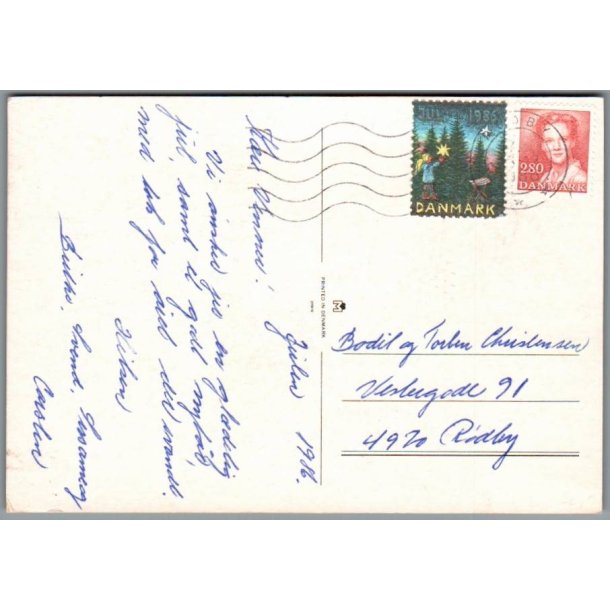 Julen 1986.
Kære Venner!
Vi ønsker jer en glædelig
jul, samt et godt nytår,
med tak for året der svandt.
Hilsen
Svend, Susanne og
Carsten
PRINTED IN DENMARK
M
JUL 1986
DANMARK
280
DANMARK
Bodil og Torben Christensen
Vestergade 91
4970 Rødby